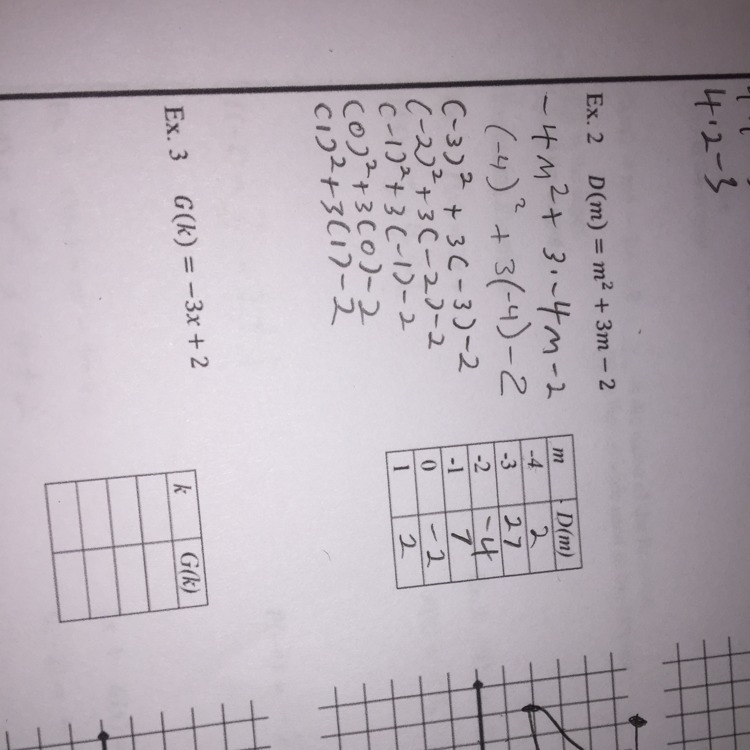 4·2-3
Ex. 2 D(m) = m² + 3m − 2
-4m² + 3·-4m-2
(-4)² + 3(-4)-2
(-3)² + 3(-3)-2
(-2)² + 3(-2)-2
(-1)² + 3(-1)-2
(0)² + 3(0)-2
(1)² + 3(1)-2
m D(m)
-4 2
-3 27
-2 -4
-1 7
0 -2
1 2
Ex. 3 G(k) = −3x + 2
k G(k)